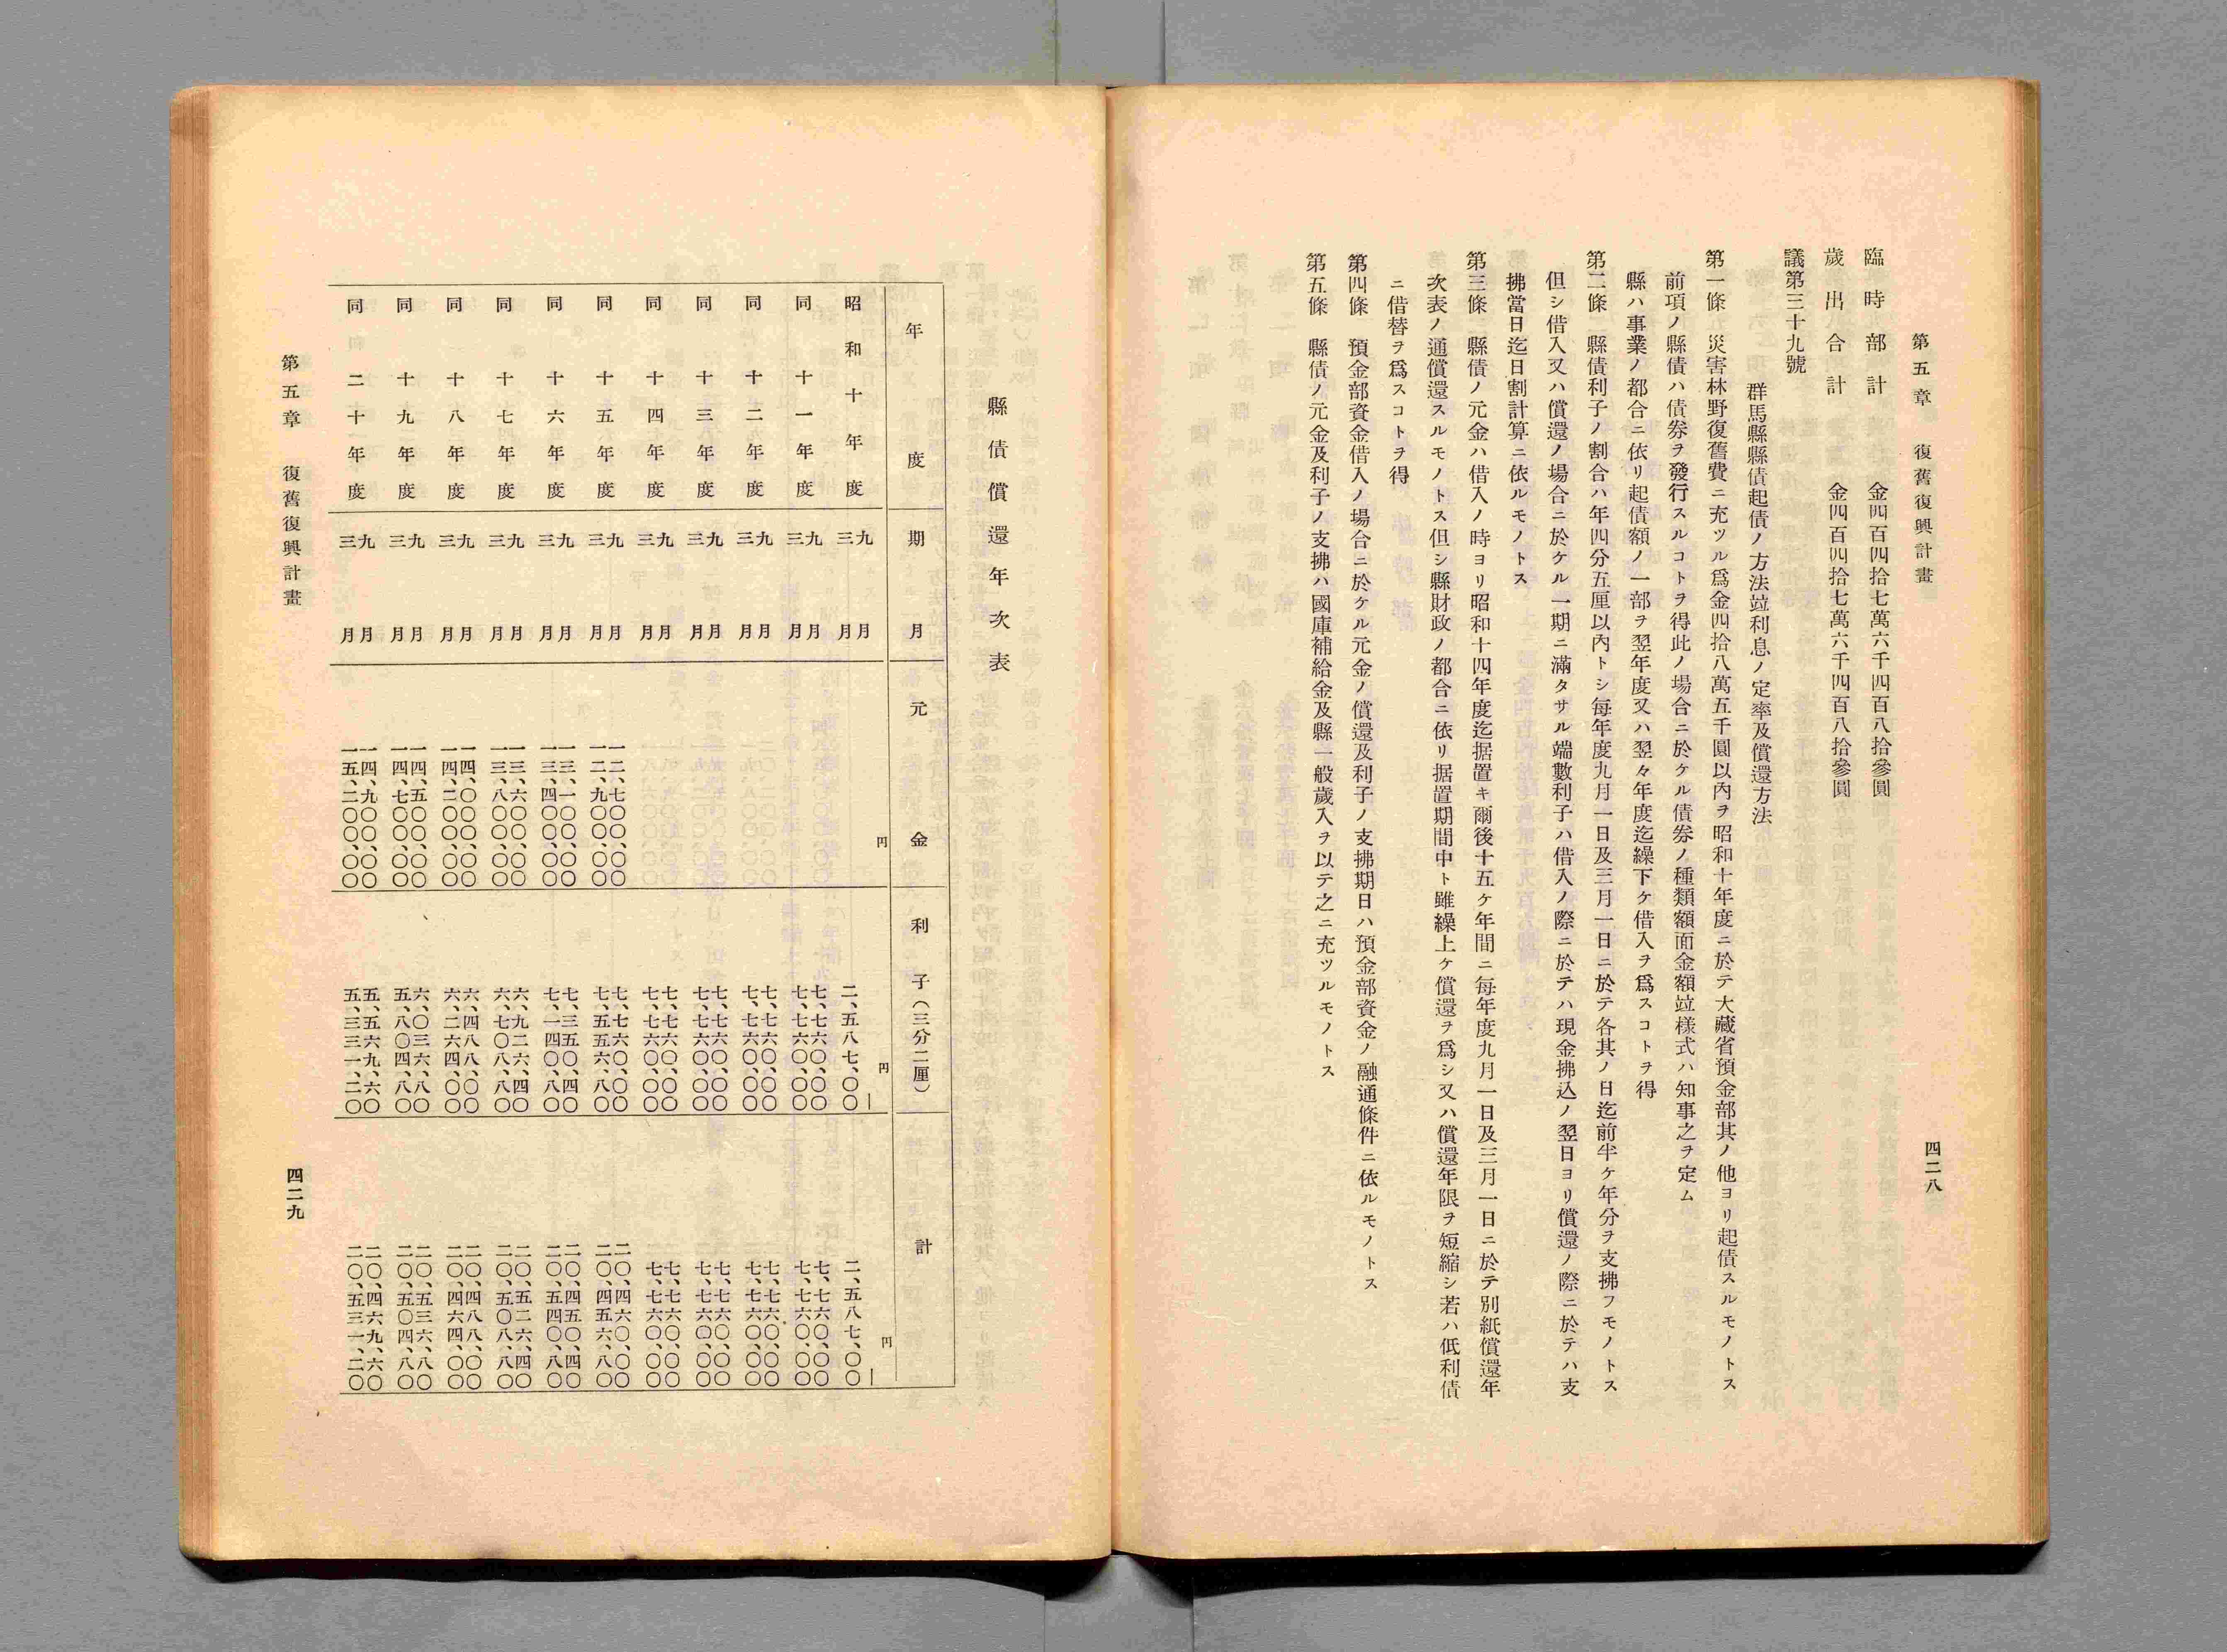 第五章 復舊復興計畫
四二八
臨時部計 金四百四拾七萬六千四百八拾參圓
歲出合計 金四百四拾七萬六千四百八拾參圓
議第三十九號
群馬縣縣債起債ノ方法竝利息ノ定率及償還方法
第一條 災害林野復舊費ニ充ツル爲金四拾八萬五千圓以內ヲ昭和十年度ニ於テ大藏省預金部其ノ他ヨリ起債スルモノトス
前項ノ縣債ハ債券ヲ發行スルコトヲ得此ノ場合ニ於ケル債券ノ種類額面金額竝樣式ハ知事之ヲ定ム
縣ハ事業ノ都合ニ依リ起債額ノ一部ヲ翌年度又ハ翌々年度迄繰下ケ借入ヲ爲スコトヲ得
第二條 縣債利子ノ割合ハ年四分五厘以內トシ每年度九月一日及三月一日ニ於テ各其ノ日迄前半ケ年分ヲ支拂フモノトス
但シ借入又ハ償還ノ場合ニ於ケル一期ニ滿タサル端數利子ハ借入ノ際ニ於テハ現金拂込ノ翌日ヨリ償還ノ際ニ於テハ支
拂當日迄日割計算ニ依ルモノトス
第三條 縣債ノ元金ハ借入ノ時ヨリ昭和十四年度迄据置キ爾後十五ケ年間ニ每年度九月一日及三月一日ニ於テ別紙償還年
次表ノ通償還スルモノトス但シ縣財政ノ都合ニ依リ据置期間中ト雖繰上ケ償還ヲ爲シ又ハ償還年限ヲ短縮シ若ハ低利債
ニ借替ヲ爲スコトヲ得
第四條 預金部資金借入ノ場合ニ於ケル元金ノ償還及利子ノ支拂期日ハ預金部資金ノ融通條件ニ依ルモノトス
第五條 縣債ノ元金及利子ノ支拂ハ國庫補給金及縣一般歲入ヲ以テ之ニ充ツルモノトス
縣債償還年次表
年度 期月 元金 利子(三分二厘) 計
円 円 円
昭和十年度 九月 ― ―
三月 二、五八七、〇〇 二、五八七、〇〇
同十一年度 九月 七、七六〇、〇〇 七、七六〇、〇〇
三月 七、七六〇、〇〇 七、七六〇、〇〇
同十二年度 九月 七、七六〇、〇〇 七、七六〇、〇〇
三月 七、七六〇、〇〇 七、七六〇、〇〇
同十三年度 九月 七、七六〇、〇〇 七、七六〇、〇〇
三月 七、七六〇、〇〇 七、七六〇、〇〇
同十四年度 九月 七、七六〇、〇〇 七、七六〇、〇〇
三月 七、七六〇、〇〇 七、七六〇、〇〇
同十五年度 九月 一二、七〇〇、〇〇 七、七六〇、〇〇 二〇、四六〇、〇〇
三月 一二、九〇〇、〇〇 七、五五六、八〇 二〇、四五六、八〇
同十六年度 九月 一三、一〇〇、〇〇 七、三五〇、四〇 二〇、四五〇、四〇
三月 一三、四〇〇、〇〇 七、一四〇、八〇 二〇、五四〇、八〇
同十七年度 九月 一三、六〇〇、〇〇 六、九二六、四〇 二〇、五二六、四〇
三月 一三、八〇〇、〇〇 六、七〇八、八〇 二〇、五〇八、八〇
同十八年度 九月 一四、〇〇〇、〇〇 六、四八八、〇〇 二〇、四八八、〇〇
三月 一四、二〇〇、〇〇 六、二六四、〇〇 二〇、四六四、〇〇
同十九年度 九月 一四、五〇〇、〇〇 六、〇三六、八〇 二〇、五三六、八〇
三月 一四、七〇〇、〇〇 五、八〇四、八〇 二〇、五〇四、八〇
同二十年度 九月 一四、九〇〇、〇〇 五、五六九、六〇 二〇、四六九、六〇
三月 一五、二〇〇、〇〇 五、三三一、二〇 二〇、五三一、二〇
第五章 復舊復興計畫
四二九